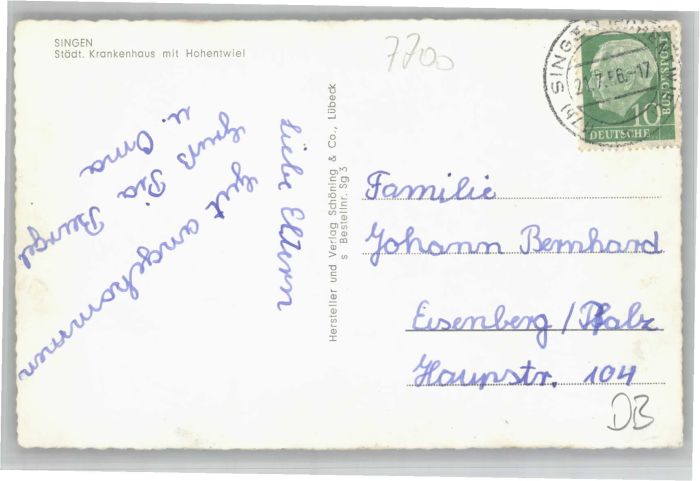 SINGEN
Städt. Krankenhaus mit Hohentwiel
7700
SINGEN
21.7.56.-17
(17b)
10
DEUTSCHE
BUNDESPOST
Liebe Eltern
Gut angekommen
Gruß Pia
u. Oma
Hersteller und Verlag Schöning & Co., Lübeck
s Bestellnr. Sg 3
Familie
Johann Bernhard
Eisenberg / Pfalz
Haupstr. 104
DB